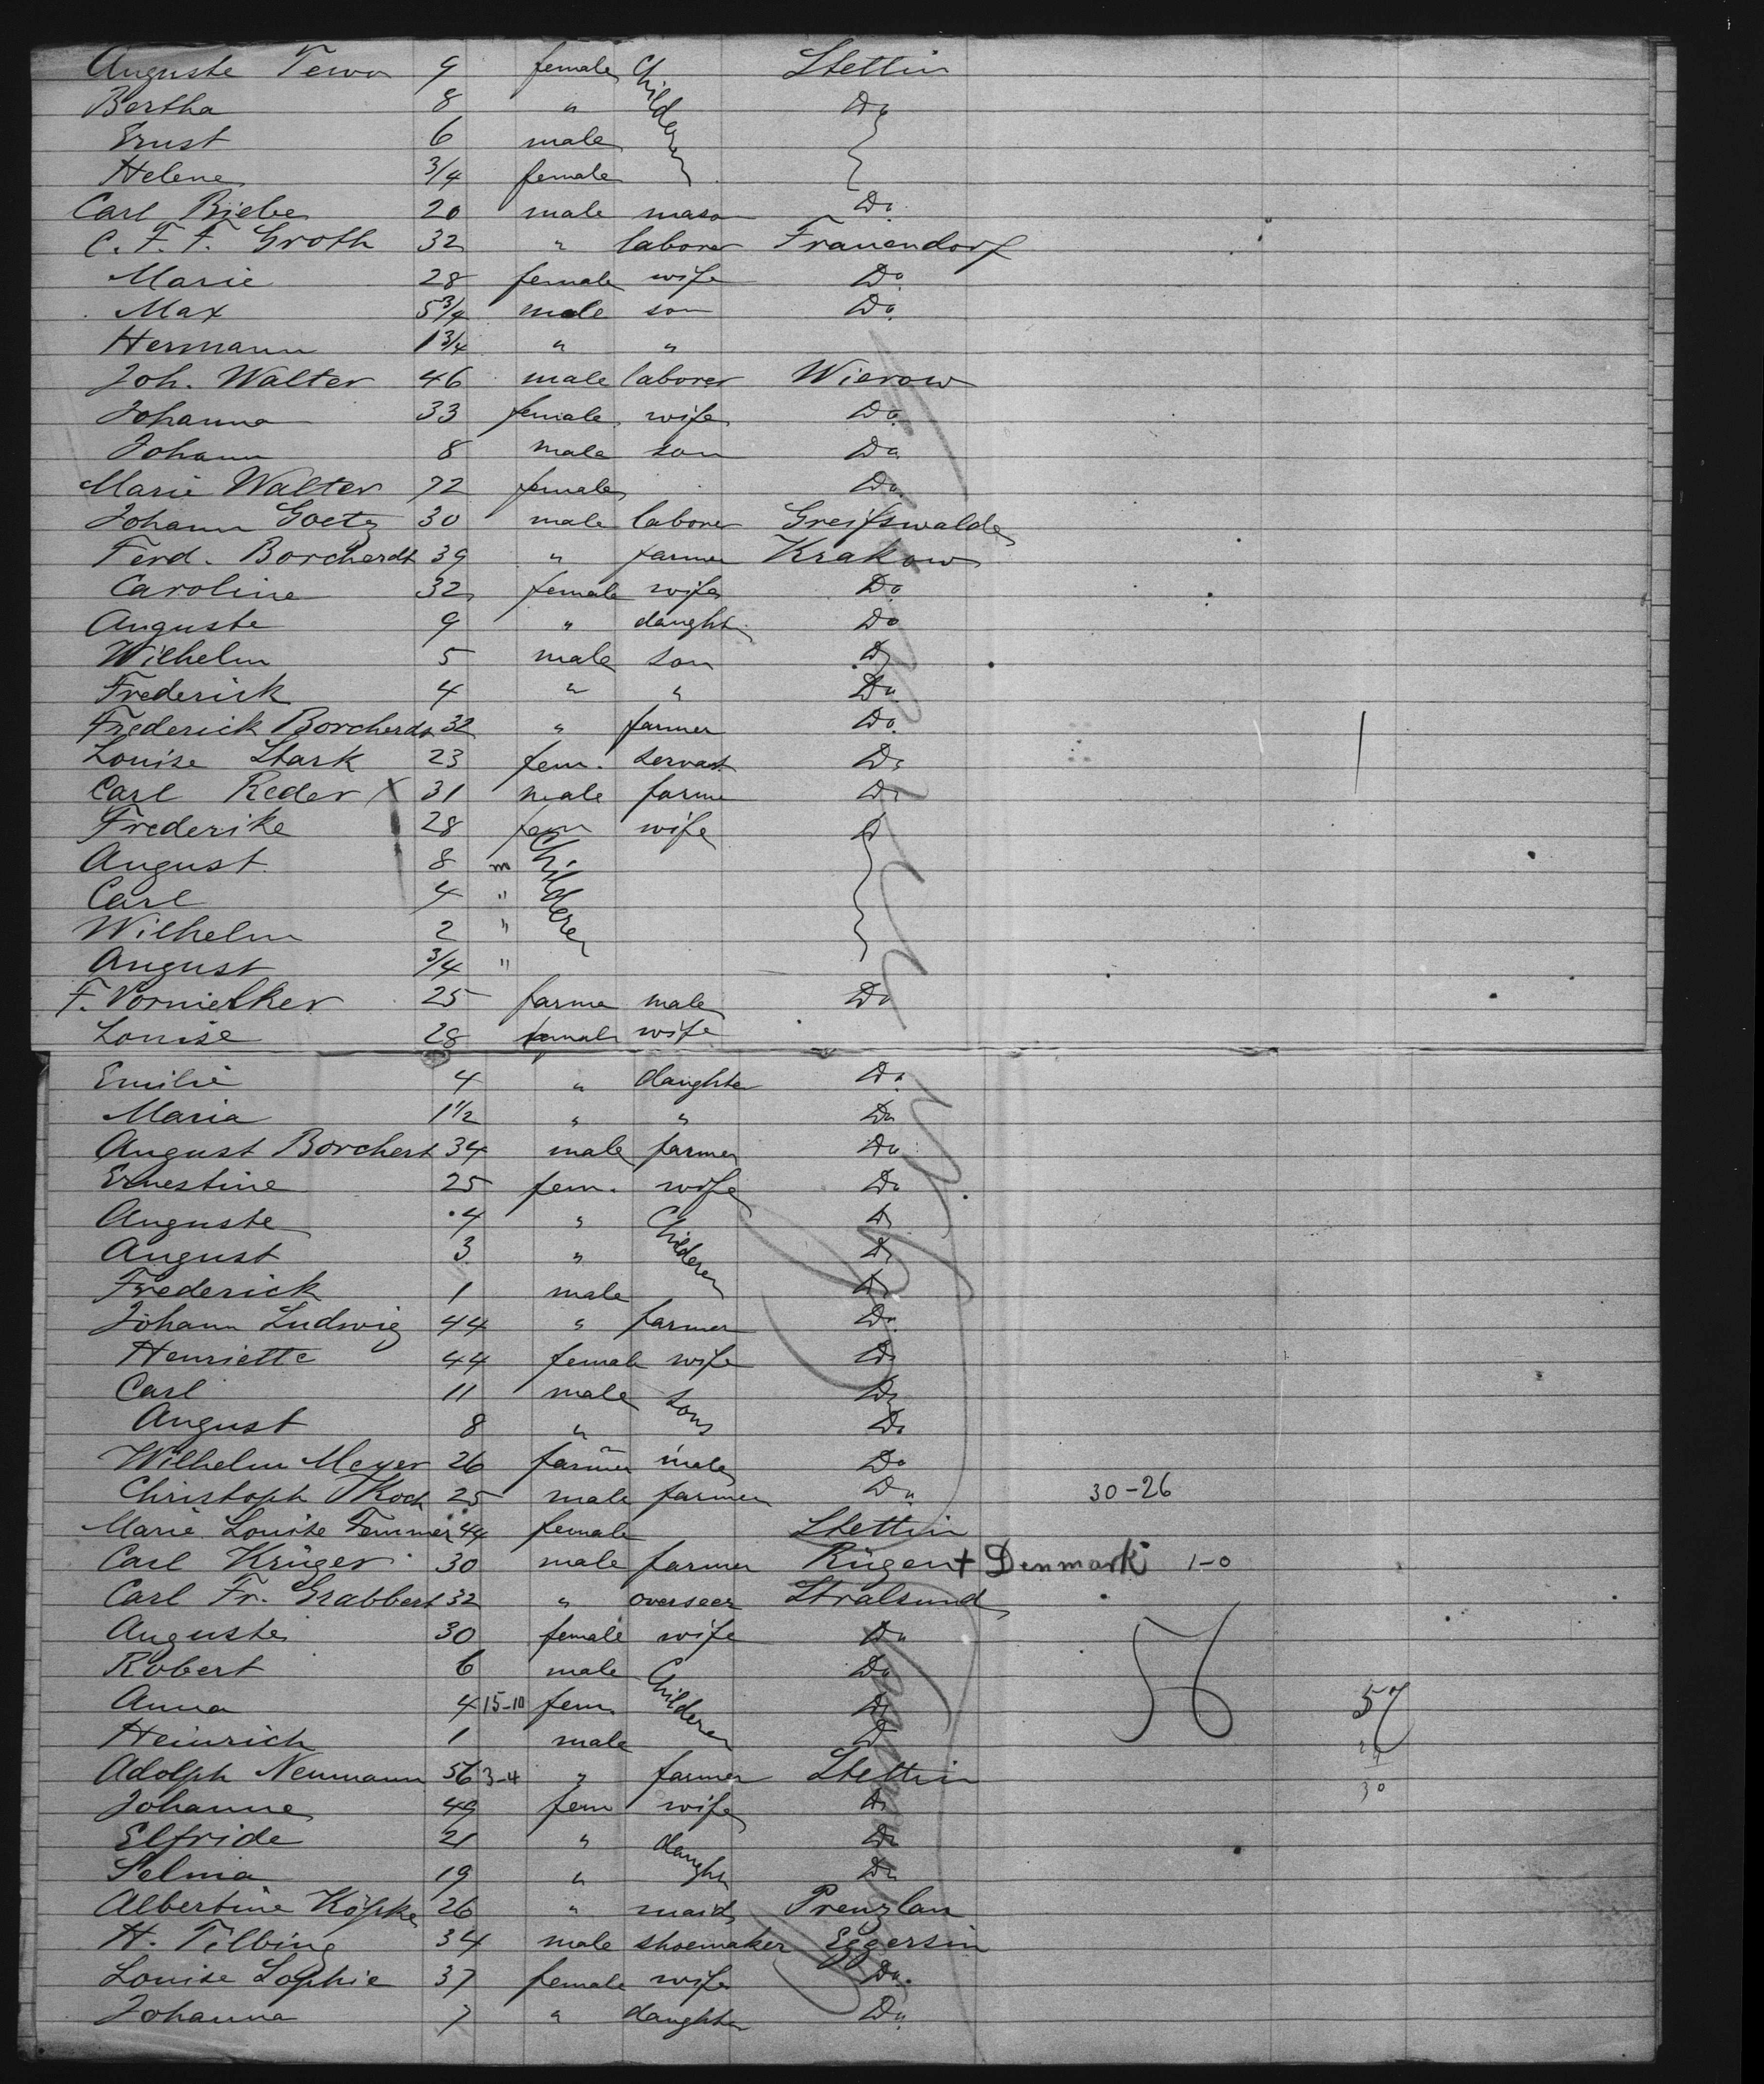 Auguste 9 female Children Stettin
Bertha 8 " Do
Ernst 6 male
Helene 3/4 female
Carl 20 male mason Do.
C. F. F. Groth 32 " laborer Frauendorf
Marie 28 female wife Do.
Max 5 3/4 male son Do.
Hermann 1 3/4 " "
Joh. Walter 46 male laborer Wierow
Johanna 33 female wife Do.
Johann 8 male son Do
Marie Walter 72 female Do.
Johann Goetz 30 male laborer Greifswalde
Ferd. Borcherdt 39 " farmer Krakow
Caroline 32 female wife Do.
Auguste 9 " daught. Do
Wilhelm 5 male son Do
Frederick 4 " " Do
Frederick Borcherdt 32 " farmer Do.
Louise Stark 23 fem. servant Do
Carl Reder X 31 male farmer Do
Frederike 28 fem wife Do
August 8 m Childeren
Carl 4 "
Wilhelm 2 "
August 3/4 "
F. 25 farmer male Do
Louise 28 female wife
Emilie 4 " daughter Do.
Maria 1 1/2 " " Do
August Borchert 34 male farmer Do
Ernestine 25 fem. wife Do
Auguste 4 " Childeren Do
August 3 " Do
Frederick 1 male Do
Johann Ludwig 44 " farmer Do.
Henriette 44 female wife Do
Carl 11 male sons Do
August 8 " Do
Wilhelm Meyer 26 farmer male Do
Christoph Koch 25 male farmer Do 30-26
Marie Louise 44 female Stettin
Carl Krüger 30 male farmer Rügen + Denmark 1-0
Carl Fr. Grabbert 32 " overseer Stralsund
Auguste 30 female wife Do
Robert 6 male Childeren Do
Anna 4 15-10 fem. Do 57
Heinrich 1 male Do
Adolph Neumann 56 3-4 " farmer Stettin 30
Johanne 49 fem wife Do
Elfride 21 " daught Do
Selma 19 " Do
Albertine Köpke 26 " maid Prenzlau
H. Tilbing 34 male shoemaker Eggersin
Louise Sophie 37 female wife Do.
Johanna 7 " daughter Do